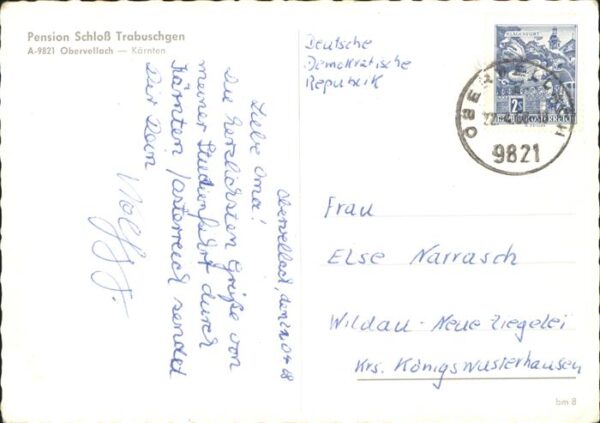 Pension Schloß Trabuschgen
A-9821 Obervellach — Kärnten
Obervellach, den 22.04.68
Liebe Oma!
Die herzlichsten Grüße von
meiner Studienfahrt durch
Kärnten / Österreich sendet
Dir Dein
Wolfg. J.
Deutsche
Demokratische
Republik
KLAGENFURT
2S
OBERVELLACH
9821
Frau
Else Narrasch
Wildau - Neue Ziegelei
Krs. Königswusterhausen
bm 8